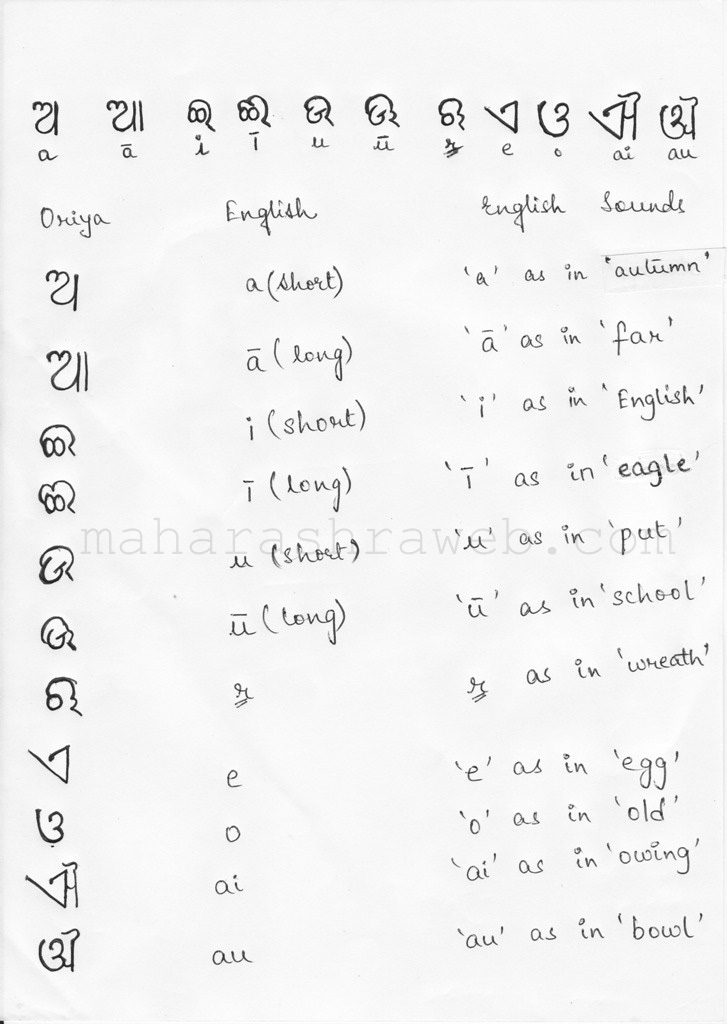 ଅ ଆ ଇ ଈ ଉ ଊ ଋ ଏ ଓ ଐ ଔ
a ā i ī u ū r̲ e o ai au
Oriya English English Sounds
ଅ a (short) 'a' as in 'autumn'
ଆ ā (long) 'ā' as in 'far'
ଇ i (short) 'i' as in 'English'
ଈ ī (long) 'ī' as in 'eagle'
maharashraweb.com
ଉ u (short) 'u' as in 'put'
ଊ ū (long) 'ū' as in 'school'
ଋ r̲ r̲ as in 'wreath'
ଏ e 'e' as in 'egg'
ଓ o 'o' as in 'old'
ଐ ai 'ai' as in 'owing'
ଔ au 'au' as in 'bowl'